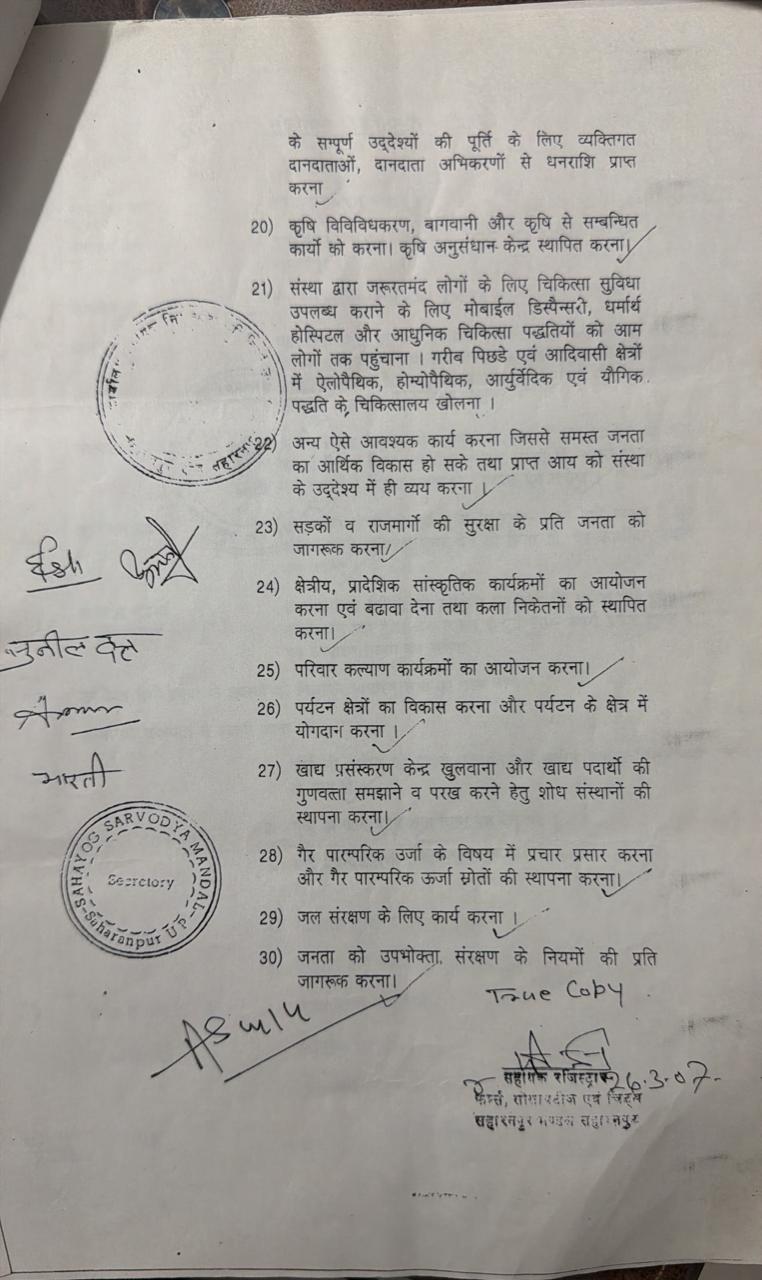 के सम्पूर्ण उद्देश्यों की पूर्ति के लिए व्यक्तिगत
दानदाताओं, दानदाता अभिकरणों से धनराशि प्राप्त
करना
20) कृषि विविविधकरण, बागवानी और कृषि से सम्बन्धित
कार्यो को करना। कृषि अनुसंधान केन्द्र स्थापित करना।
21) संस्था द्वारा जरूरतमंद लोगों के लिए चिकित्सा सुविधा
उपलब्ध कराने के लिए मोबाईल डिस्पैन्सरी, धर्मार्थ
होस्पिटल और आधुनिक चिकित्सा पद्धतियों को आम
लोगों तक पहुंचाना । गरीब पिछडे एवं आदिवासी क्षेत्रों
में ऐलोपैथिक, होम्योपैथिक, आर्युर्वेदिक एवं यौगिक
पद्धति के चिकित्सालय खोलना ।
22) अन्य ऐसे आवश्यक कार्य करना जिससे समस्त जनता
का आर्थिक विकास हो सके तथा प्राप्त आय को संस्था
के उद्देश्य में ही व्यय करना ।
23) सड़कों व राजमार्गो की सुरक्षा के प्रति जनता को
जागरूक करना।
24) क्षेत्रीय, प्रादेशिक सांस्कृतिक कार्यक्रमों का आयोजन
करना एवं बढावा देना तथा कला निकेतनों को स्थापित
करना।
सुनील दत्त
25) परिवार कल्याण कार्यक्रमों का आयोजन करना।
26) पर्यटन क्षेत्रों का विकास करना और पर्यटन के क्षेत्र में
योगदान करना ।
भारती
27) खाद्य प्रसंस्करण केन्द्र खुलवाना और खाद्य पदार्थो की
गुणवत्ता समझाने व परख करने हेतु शोध संस्थानों की
स्थापना करना।
SAHAYOG SARVODYA MANDAL
Secretory
Saharanpur U.P.
28) गैर पारम्परिक उर्जा के विषय में प्रचार प्रसार करना
और गैर पारम्परिक ऊर्जा स्रोतों की स्थापना करना।
29) जल संरक्षण के लिए कार्य करना ।
30) जनता को उपभोक्ता, संरक्षण के नियमों की प्रति
जागरूक करना।
True Copy
सहायक रजिस्ट्रार 26.3.07
फर्म्स, सोसायटीज एवं चिट्स
सहारनपुर मण्डल सहारनपुर